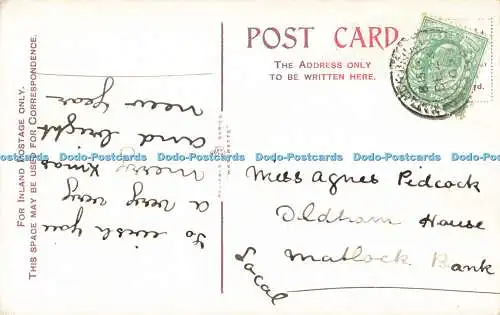 POST CARD.
THE ADDRESS ONLY
TO BE WRITTEN HERE.
FOR INLAND POSTAGE ONLY.
THIS SPACE MAY BE USED FOR CORRESPONDENCE.
To wish you
a very very
merry Xmas
and bright
new year
Miss Agnes Pidcock
Oldham House
Matlock Bank
Local
Dodo-Postcards Dodo-Postcards Dodo-Postcards Dodo-Postcards Dodo-Postcards Dodo-Postcards